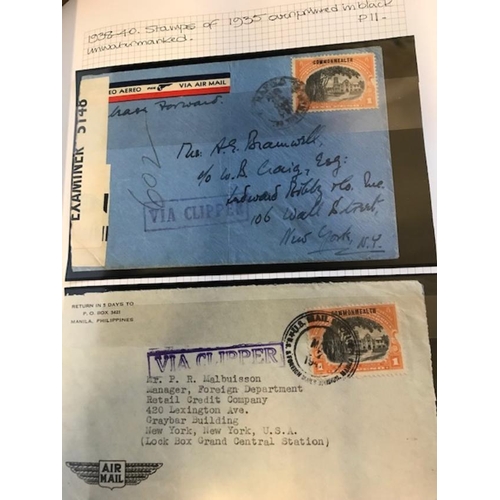 1938-40. Stamps of 1935 overprinted in black
unwatermarked. P 11.
EO AEREO PAR VIA AIR MAIL
EXAMINER 5148
COMMONWEALTH
1 1
Please Forward
Mrs. A.G.
c/o W.B. Craig, Esq:
106 Wall Street,
New York, N.Y.
VIA CLIPPER
RETURN IN 5 DAYS TO
P. O. BOX 3421
MANILA, PHILIPPINES
VIA CLIPPER
U.S. MAIL
COMMONWEALTH
1 1
Mr. P. R. Malbuisson
Manager, Foreign Department
Retail Credit Company
420 Lexington Ave.
Graybar Building
New York, New York, U.S.A.
(Lock Box Grand Central Station)
AIR
MAIL